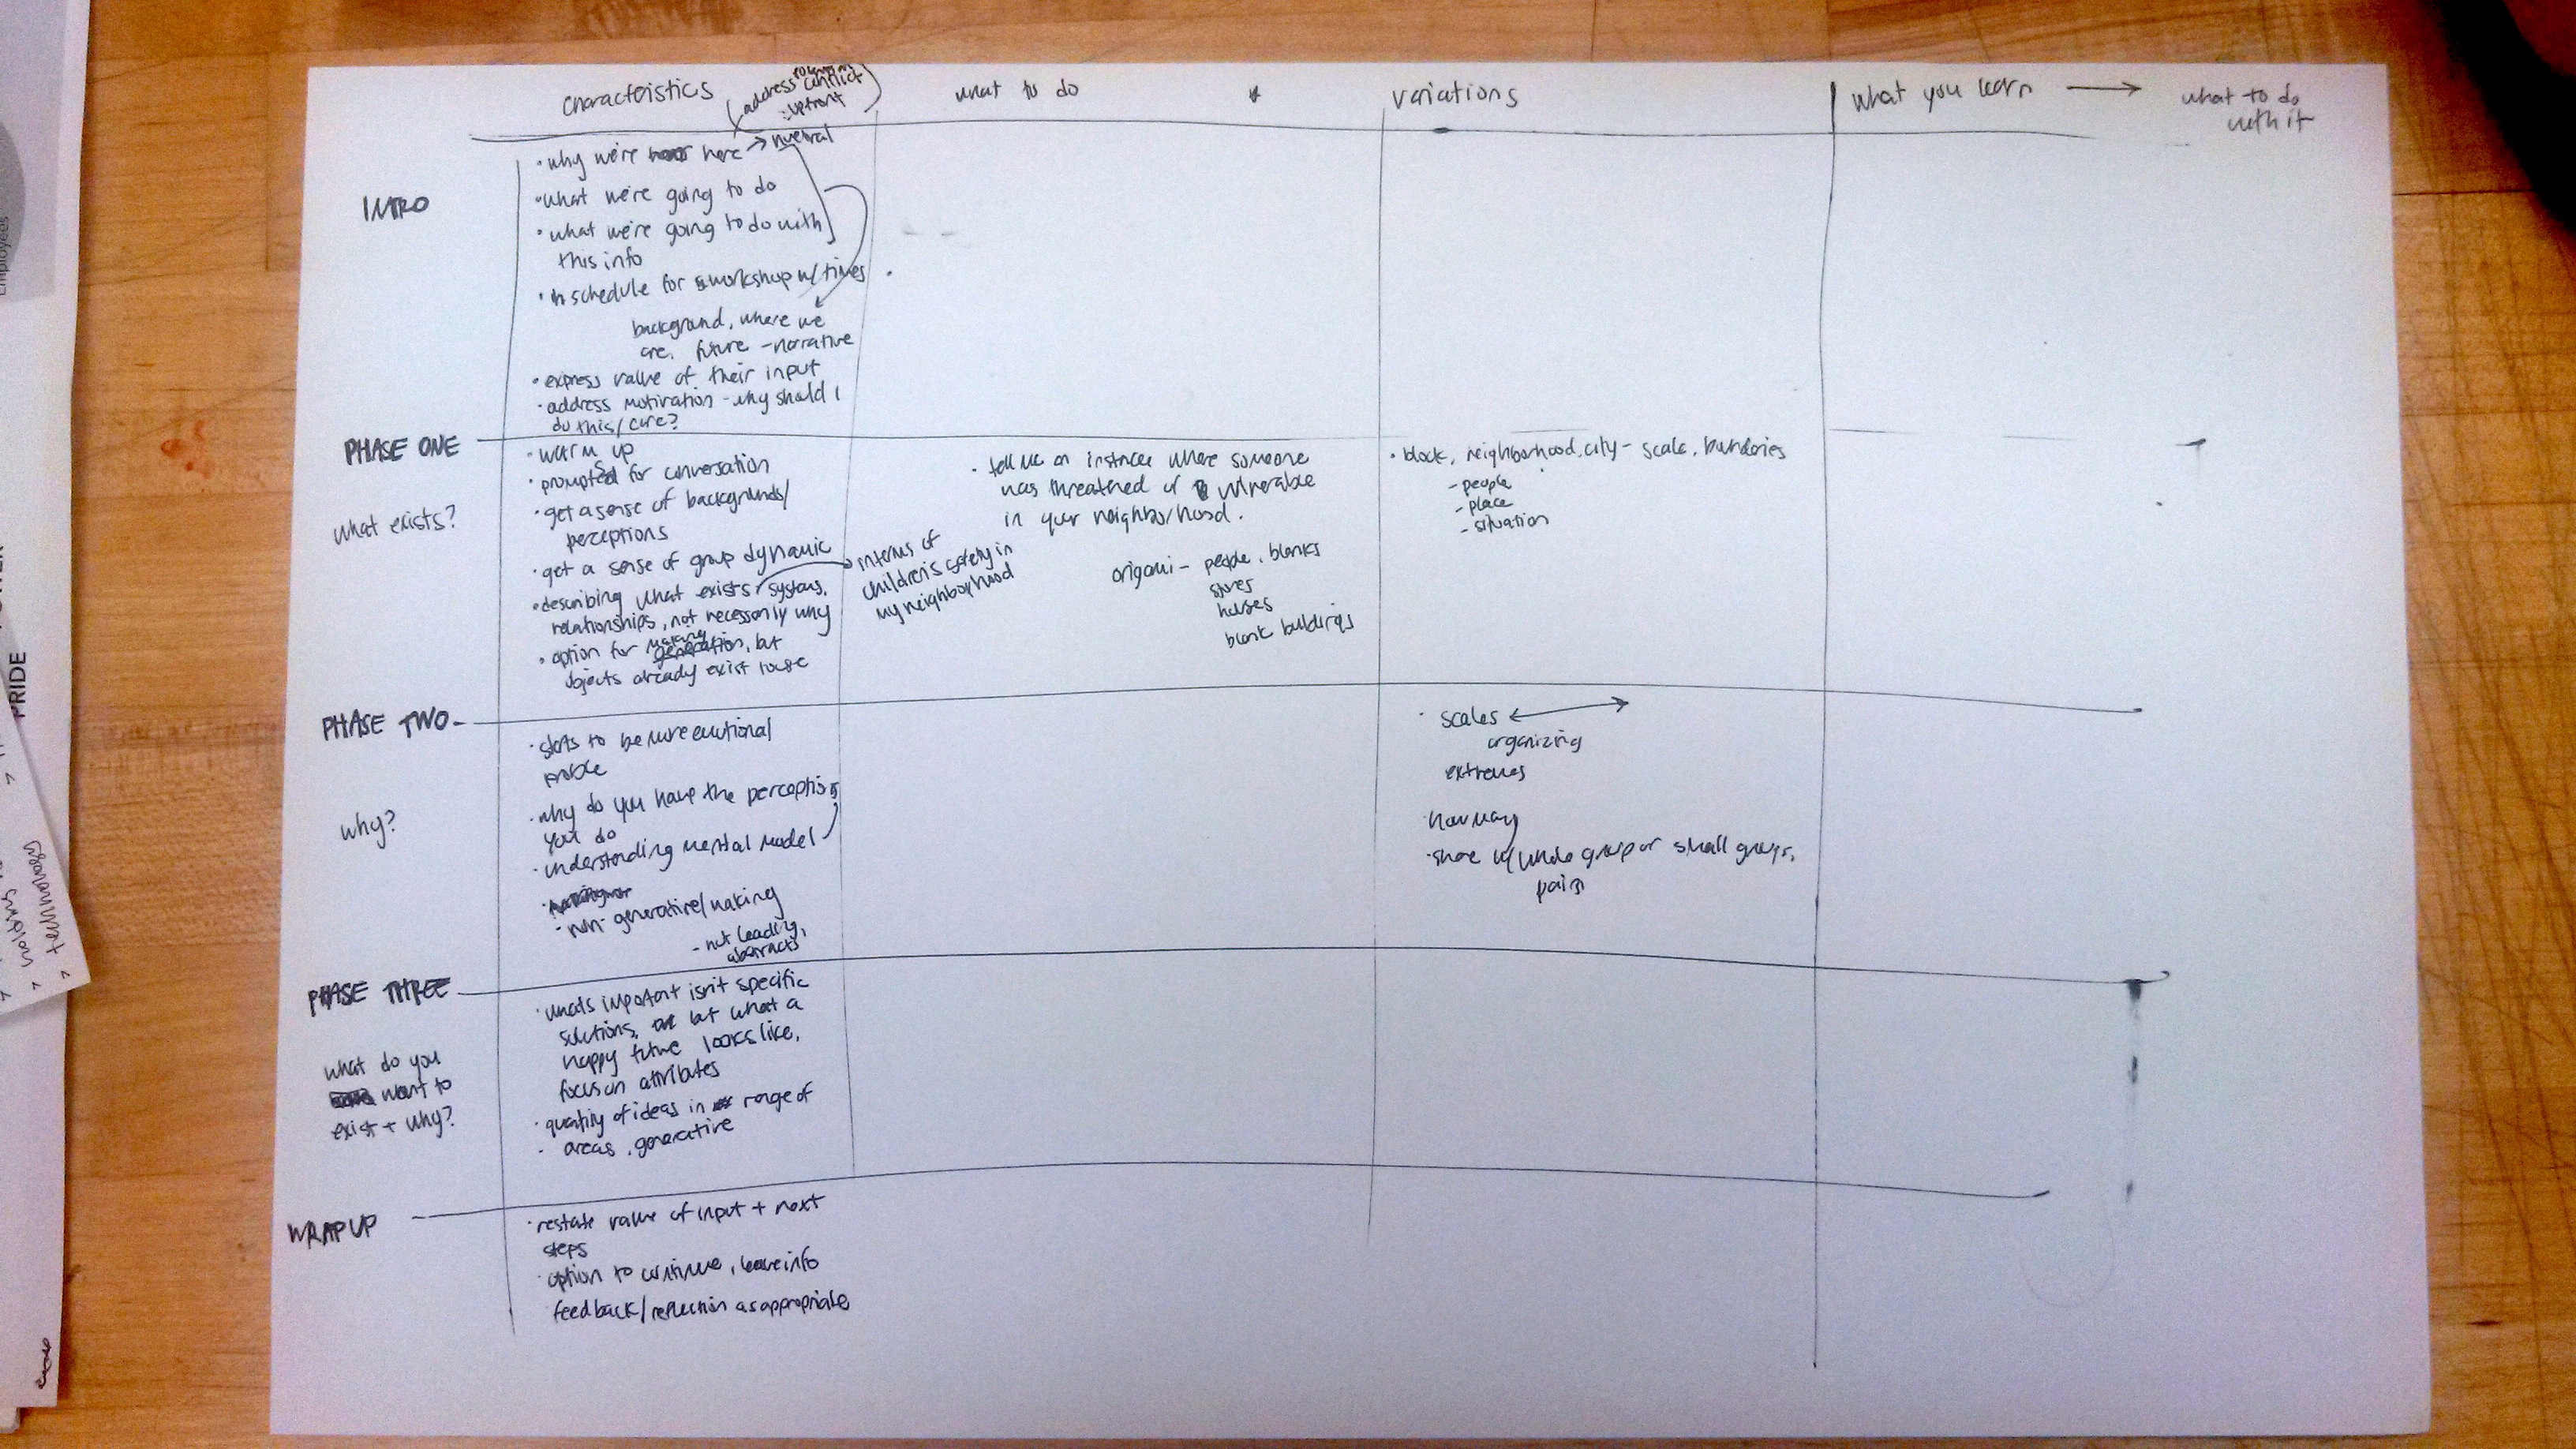 characteristics
(address potential conflict upfront)
what to do
variations
What you learn → what to do
with it
INTRO
· why we're here → nuetral
· what we're going to do
· what we're going to do with
this info
· schedule for workshop w/ times
background, where we
are, future - narrative
· express value of their input
· address motivation - why should I
do this/care?
PHASE ONE
what exists?
· warm up
· prompted for conversation
· get a sense of backgrounds/
perceptions
· get a sense of group dynamic
· describing what exists, systems,
relationships, not necessarily why
· option for making generation, but
objects already exist to use
in terms of
children's safety in
my neighborhood
· tell me an instance where someone
was threathed or vulnerable
in your neighborhood.
origami - people, blanks
stores
houses
blank buildings
· block, neighborhood, city - scale, bundaries
- people
- place
- situation
PHASE TWO
why?
· starts to be more emotional
probe
· why do you have the perceptions
you do
· understanding mental model
· non-generative/making
- not leading,
abstracts
· scales ⟷
organizing
extremes
· how many
· share w/ whole group or small groups,
pairs
PHASE THREE
what do you
want to
exist + why?
· what's important isn't specific
solutions, but what a
happy future looks like,
focus on attributes
· quantity of ideas in range of
· areas, generative
WRAP UP
· restate value of input + next
steps
· option to continue, leave info
feedback/reflection as appropriate
PRIDE
Employees